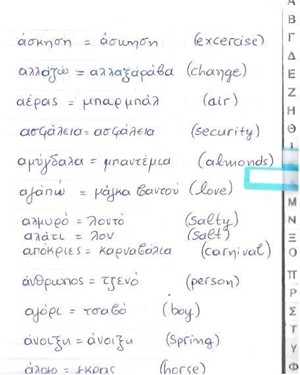 άσκηση = άσκηση (excercise)
αλλάζω = αλλαξάραβα (change)
αέρας = μπαρμπάλ (air)
ασφάλεια = ασφάλεια (security)
αμύγδαλα = μπαντέμια (almonds)
αγαπώ = μάγκα βαντού (love)
αλμυρό = λοντό (salty)
αλάτι = λον (salt)
απόκριες = καρναβάλια (carnival)
άνθρωπος = τζενό (person)
αγόρι = τσαβό (boy)
άνοιξη = άνοιξη (spring)
άλογο = γκρας (horse)
Α
Β
Γ
Δ
Ε
Ζ
Η
Θ
Ι
Μ
Ν
Ξ
Ο
Π
Ρ
Σ
Τ
Υ
Φ